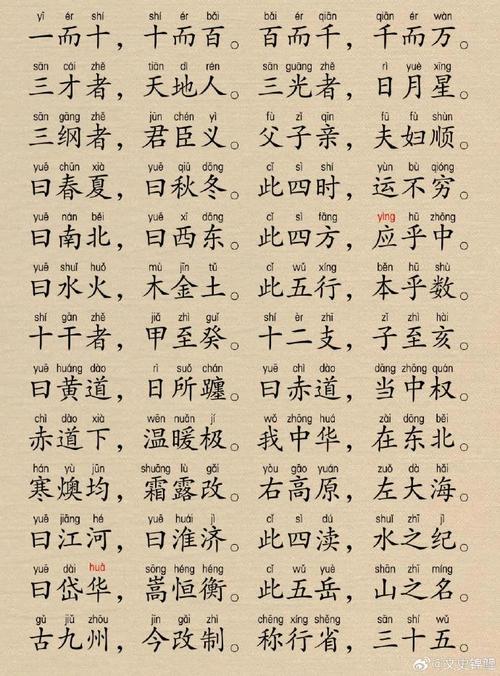 yī ér shí shí ér bǎi bǎi ér qiān qiān ér wàn
一而十，十而百。百而千，千而万。
sān cái zhě tiān dì rén sān guāng zhě rì yuè xīng
三才者，天地人。三光者，日月星。
sān gāng zhě jūn chén yì fù zǐ qīn fū fù shùn
三纲者，君臣义。父子亲，夫妇顺。
yuē chūn xià yuē qiū dōng cǐ sì shí yùn bù qióng
曰春夏，曰秋冬。此四时，运不穷。
yuē nán běi yuē xī dōng cǐ sì fāng yìng hū zhōng
曰南北，曰西东。此四方，应乎中。
yuē shuǐ huǒ mù jīn tǔ cǐ wǔ xíng běn hū shù
曰水火，木金土。此五行，本乎数。
shí gān zhě jiǎ zhì guǐ shí èr zhī zǐ zhì hài
十干者，甲至癸。十二支，子至亥。
yuē huáng dào rì suǒ chán yuē chì dào dāng zhōng quán
曰黄道，日所躔。曰赤道，当中权。
chì dào xià wēn nuǎn jí wǒ zhōng huá zài dōng běi
赤道下，温暖极。我中华，在东北。
hán yù jūn shuāng lù gǎi yòu gāo yuán zuǒ dà hǎi
寒燠均，霜露改。右高原，左大海。
yuē jiāng hé yuē huái jǐ cǐ sì dú shuǐ zhī jì
曰江河，曰淮济。此四渎，水之纪。
yuē dài huà sōng héng héng cǐ wǔ yuè shān zhī míng
曰岱华，嵩恒衡。此五岳，山之名。
gǔ jiǔ zhōu jīn gǎi zhì chēng xíng shěng sān shí wǔ
古九州，今改制。称行省，三十五。
@文史锦鲤